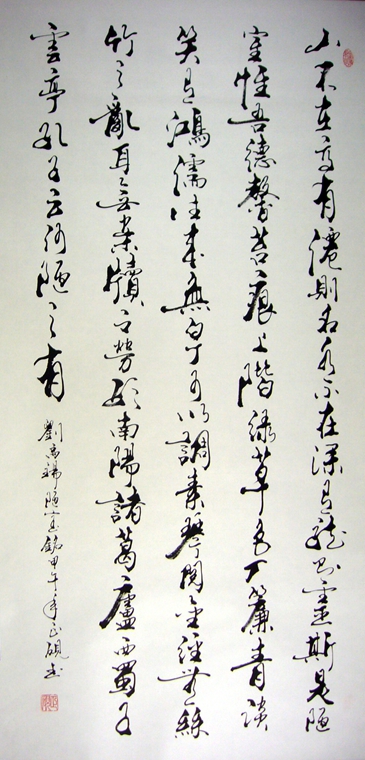 山不在高有僊則名水不在深有龍則靈斯是陋
室惟吾德馨苔痕上階綠草色入簾青談
笑有鴻儒往來無白丁可以調素琴閱金經無絲
竹之亂耳無案牘之勞形南陽諸葛廬西蜀子
雲亭孔子云何陋之有
劉禹錫陋室銘甲午年正硯书